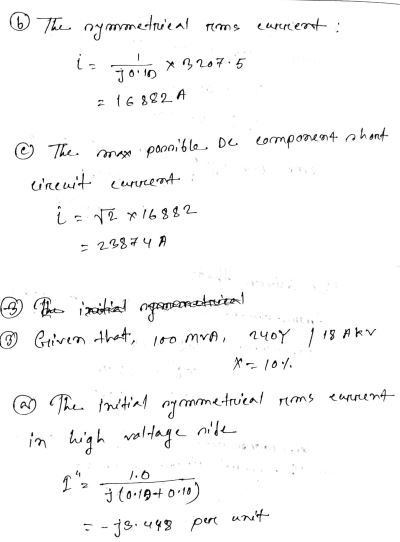 (b) The symmetrical rms current :
i = 1/j0.19 × 3207.5
= 16882 A
(c) The max possible Dc component short
circuit current :
i = √2 × 16882
= 23874 A
(3) Given that, 100 MVA, 240Y / 18 Δ kv
X = 10%
(a) The initial symmetrical rms current
in high voltage side
I" = 1.0 / j(0.19 + 0.10)
= -j3.448 per unit